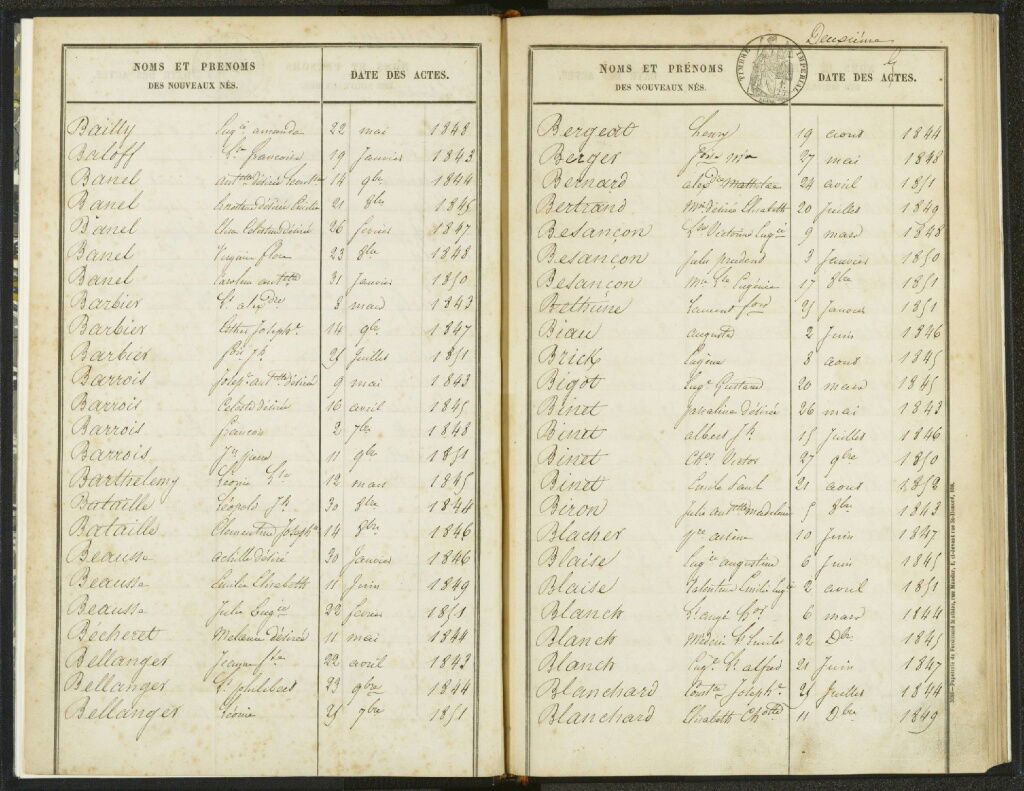 NOMS ET PRENOMS
DES NOUVEAUX NÉS.
DATE DES ACTES.
Bailly Eug.ie amanda 22 mai 1848
Baloff L.se francoise 19 Janvier 1843
Banel ant.tte désirée 14 9bre 1844
Banel désirée 21 8bre 1845
Banel Celestin désiré 26 fevrier 1847
Banel 23 8bre 1848
Banel Caroline ant.tte 31 Janvier 1850
Barbier L.s alex.dre 8 mars 1843
Barbier Esther Joseph.e 14 9bre 1847
Barbier J.h 25 Juillet 1851
Barrois Joseph ant.tte désiré 9 mai 1843
Barrois Celeste désirée 16 avril 1845
Barrois francois 2 7bre 1848
Barrois pierre 11 9bre 1851
Barthelemy Léonie 12 mars 1845
Bataille Léopold J.h 30 8bre 1844
Bataille Clementine Joseph.e 14 8bre 1846
Beausse achille désiré 30 Janvier 1846
Beausse Emilie Elisabeth 11 Juin 1849
Beausse Julie Eug.ie 22 fevrier 1851
Bécheret Melanie désirée 11 mai 1844
Bellanger 22 avril 1843
Bellanger L.s philibert 23 9bre 1844
Bellanger Léonie 25 9bre 1851
Deuxième
NOMS ET PRÉNOMS
DES NOUVEAUX NÉS.
TIMBRE IMPÉRIAL
DATE DES ACTES.
Bergeat henry 19 aout 1844
Berger 27 mai 1848
Bernard alex.dre Mathilde 24 avril 1851
Bertrand M.ie désirée Elisabeth 20 Juillet 1849
Besançon L.se Victorine Eug.ie 9 mars 1848
Besançon Jules prudent 3 Janvier 1850
Besançon M.ie L.se Eugénie 17 8bre 1851
Bethune Laurent 25 Janvier 1851
Biau auguste 2 Juin 1846
Brick Eugène 8 aout 1845
Bigot Eug.e Gustave 20 mars 1845
Binet désirée 26 mai 1843
Binet albert J.h 15 Juillet 1846
Binet Ch.es Victor 27 9bre 1850
Binet Emile Paul 21 aout 1852
Biron Julie ant.tte Madeleine 5 8bre 1843
Blacher 10 Juin 1847
Blaise Eug.ie augustine 6 Juin 1845
Blaise Valentine Emilie Eug.ie 2 avril 1851
Blanck 6 mars 1844
Blanck Emile 22 Dbre 1845
Blanck Eug.e alfred 21 Juin 1847
Blanchard Joseph.e 25 Juillet 1844
Blanchard Elisabeth Ch.otte 11 Dbre 1849